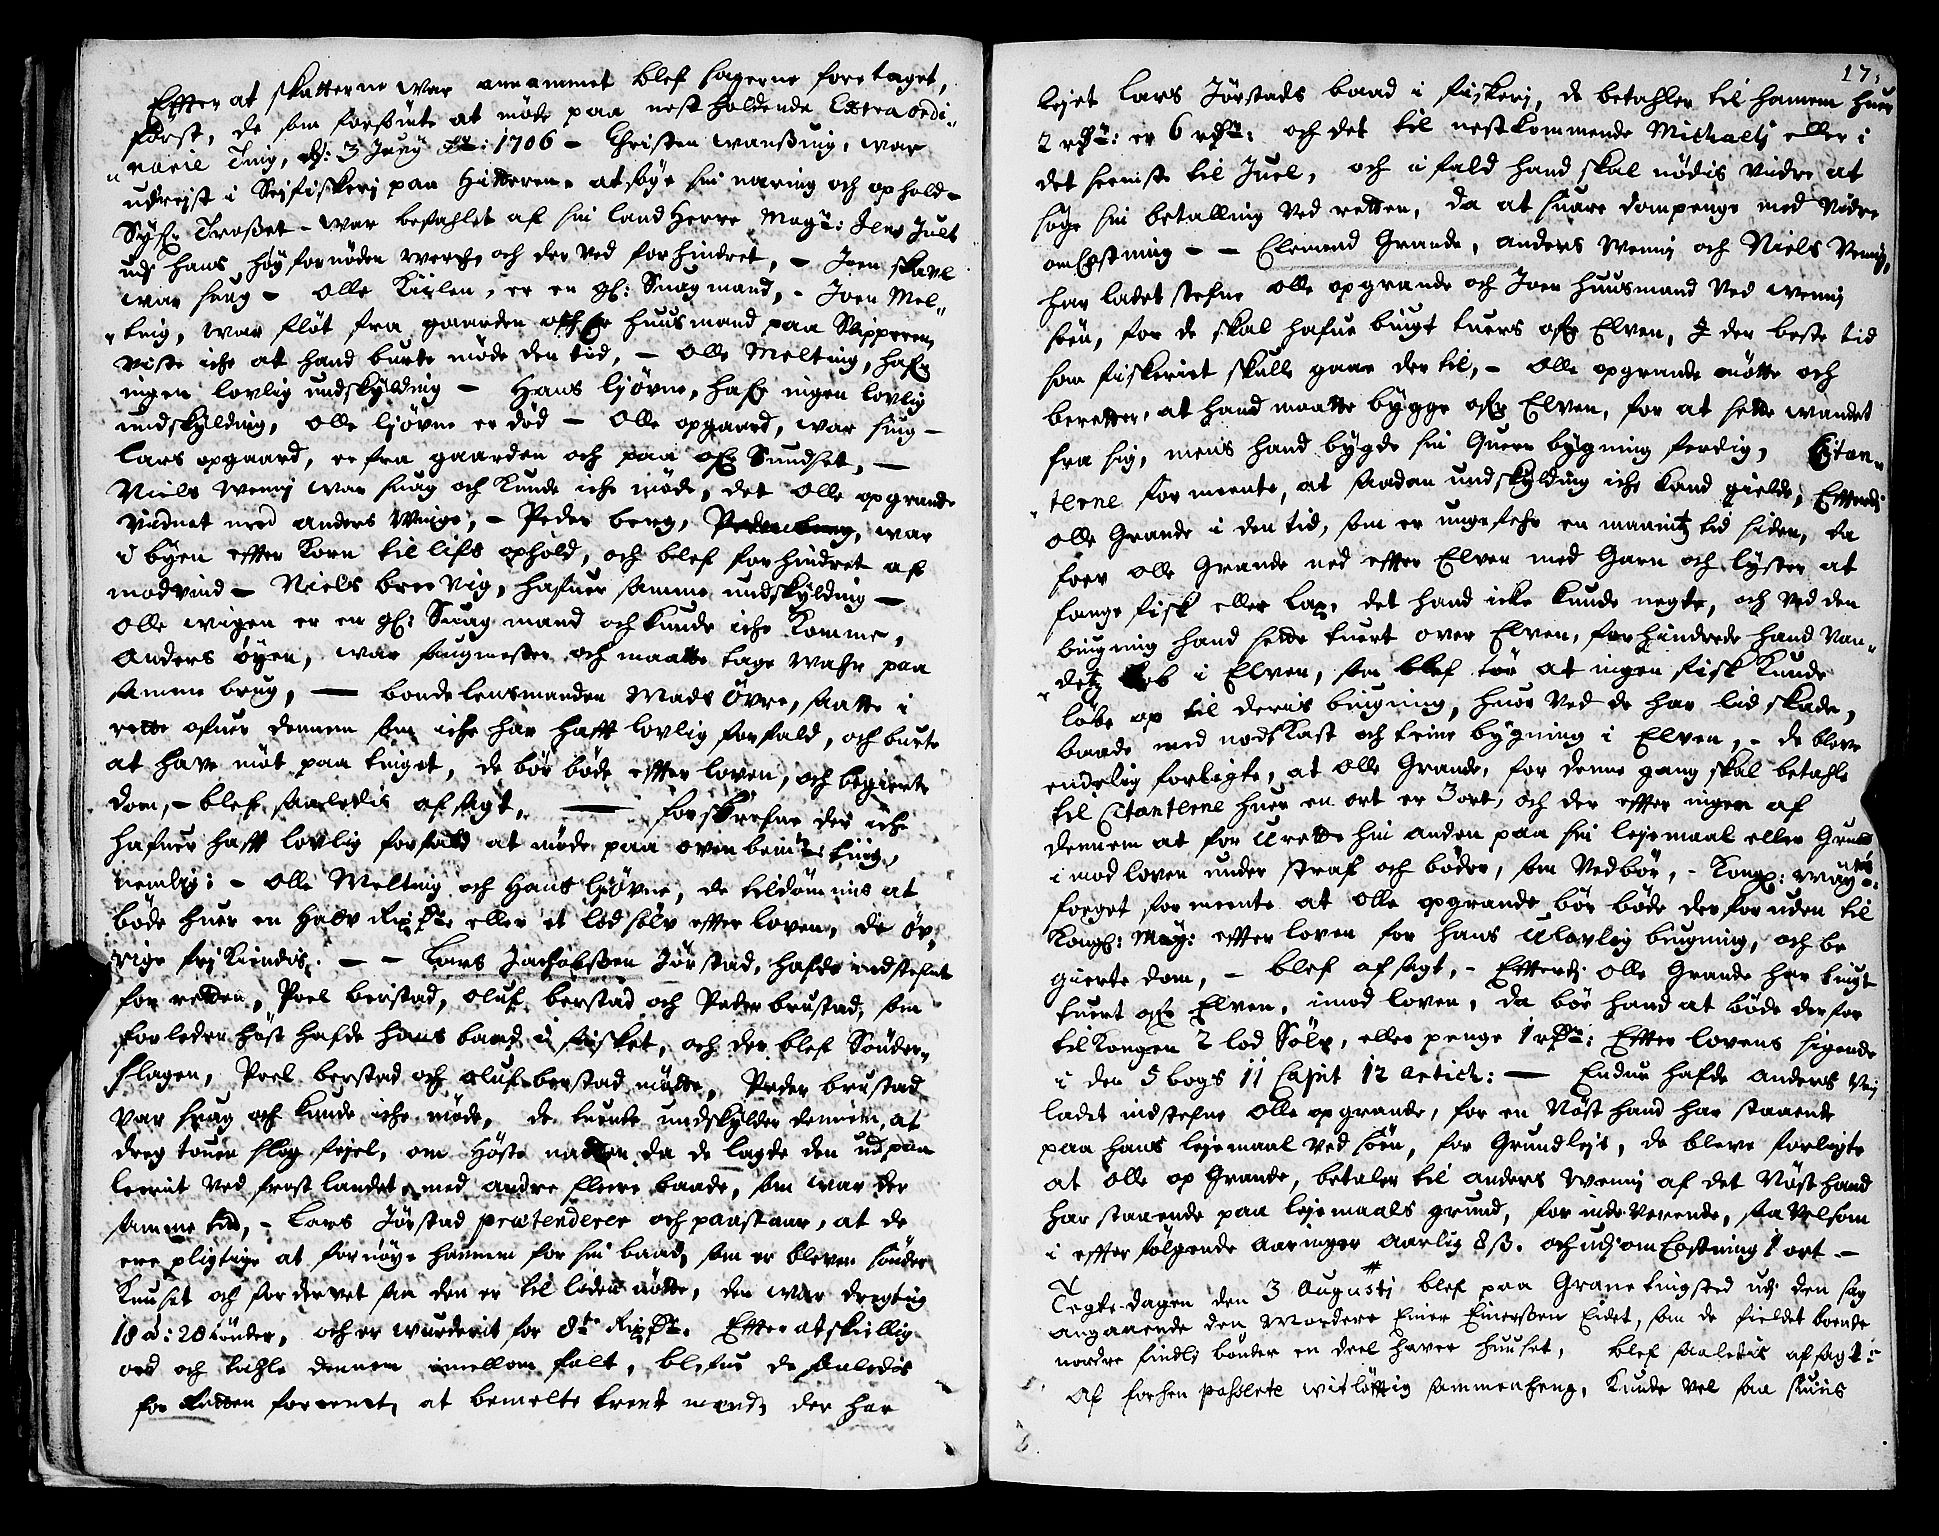 Effter at skatterne war annammet blef sagerne foretaget,
først, de som forsømte at møde paa nest holdende Extraordi„
„narie Ting, d: 3 Juny Ao: 1706 – Christen wanßuig, war
udrejst i Sejfiskerj paa Hitteren, at søge sin næring och ophold –
Troßet – war befahlet af sin land Herre Magr: Jens Juel
udj hans høyfornøden werch och der ved forhindret, – Joen skavl
war siug – Olle Kiølen, er en gl: Suag mand, – Joen Mel„
„ting, war fløt fra gaarden och er huusmand paa
viste iche at hand burte møde den tid, – Olle Melting, hafr
ingen lovlig undskylding – Hans ljøvne, hafr ingen lovlig
undskylding, Olle ljøvne er død – Olle opgaard, war siug –
Lars opgaard, er fra gaarden och paa ofr Sundset, –
Niels Wennj war suag och kunde iche møde, det Olle opgrande
vidnet med anders Winge, – Peder berg, war
i byen effter korn til lifs ophold, och blef forhindret af
modvind – Niels bree Vig, hafuer samme undskylding –
Olle wigen er en gl: Suag mand och kunde iche komme,
anders øyen, war saugmester och maatte tage wahr paa
samme brug, – bonde lensmanden Mads Øvre, satte i
rette ofuer dennem som iche har hafft lovlig forfald, och burte
at have møt paa tinget, de bør bøde effter loven, och begierte
dom, – blef saaledis afsagt, – forskrefne der iche
hafuer hafft lovlig forfald at møde paa ovenbemte ting,
nemlig: – Olle Melting och Hans ljøvne, de tildømmis at
bøde huer en halv Rixdr eller et lod sølv effter loven, de øv„
rige frj kiendis. – – Lars Jachobßen Jørstad, hafde indstefnt
for retten, Poel berstad, oluf berstad och Peder brustad, som
forleden høst hafde hans baad i fisket, och der blef Sønder„
slagen, Poel berstad och oluf berstad mødte, Peder brustad
Var suag och kunde iche møde, de tuende undskylder dennem, at
dreg touen slog fejel, om Høste natten da de lagde den ud paa
leenit ved frost landet, med andre fleere baade, som war der
samme tid, – Lars Jørstad prætenderer och paastaar, at de
ere pligtige at fornøye hannem for sin baad, som er bleven sønder
knuset och fordervet saa den er til ledis nøtte, den war dregtig
18 a: 20 tønder, och er wurderit for 8te Rixdr. Effter atskillig
ord och tahle dennem imellom falt, blefue de saaledis
for Retten forrent, at bemelte trende mend, der har

17.
lejet Lars Jørstads baad i fiskerj, de betahler til hannem huer
2 rdr: er 6 rdr: och det til nestkommende Michaelj eller i
det seeniste til Juel, och i fald hand skal nødis viidre at
søge sin betalling ved retten, da at suare dompenge med vidre
omkostning – – Elemend Grande, anders Wennj och Niels Vennj,
har ladet stefne olle opgrande och Joen Huusmand ved wennj
søen, for de skal hafue bugt tuers ofr Elven, I den beste tid
som fiskeriet skulle gaae der til, – Olle opgrande møtte och
beretter, at hand maatte bygge ofr Elven, for at sette wandet
fra sig, mens hand bygde sin Quern bygning ferdig, Citan„
„terne formeente, at saadan undskylding iche kand gielde, Efterdj
olle Grande i den tid, som er ungefehr en maanitz tid siden, da
foer olle Grande ned effter Elven med Garn och lyster at
fange fisk eller lax, det hand icke kunde negte, och ved den
bugning hand sette tuert over Elven, forhindrede hand van„
„detz løb i Elven, som blef tør at ingen fisk kunde
løbe op til deris bugning, huor ved de har lid skade,
baade med nodkast och teine bygning i Elven, – de bleve
endelig forligte, at olle Grande, for denne gang skal betahle
til Citanterne huer en ort er 3 ort, och der effter ingen af
dennem at for Urette hin anden paa sin lejemaal eller Grund
imod loven under straf och bøder, som vedbør, – Kongl: Mayts:
foeget formeente at olle opgrande bør bøde der foruden til
Kongl: May: effter loven for hans Ulovlig bugning, och be
gierte dom, – blef afsagt, – Effterdj olle Grande har bugt
tuert ofr Elven, imod loven, da bør hand at bøde derfor
til Kongen 2 lod Sølv, eller penge 1 rdr: Effter lovens sigende
i den 5 bogs 11 Capit 12 articl: – Endnu hafde anders Vej
ladet indstefne olle opgrande, for en Nøst hand har staaende
paa hans lejemaal ved søen, for Grundlejs, de bleve forligte
at olle op Grande, betaler til anders Wennj af det Nøst hand
har staaende paa lejemaals grund, for inde verende, saa velsom
i effterfølgende aaringer aarlig 8 ß. och udj omkostning 1 ort –
Tegte-dagen den 3 Augustj blef paa Grane tingsted udj den sag
angaaende den Mordere Einer Einerssen Eidet, som de fieldet boende
nordre findlj bønder en deel haver huuset, blef saaledis afsagt:
Af forhen passerte witløfftig sammenheng, kunde vel saa siunis